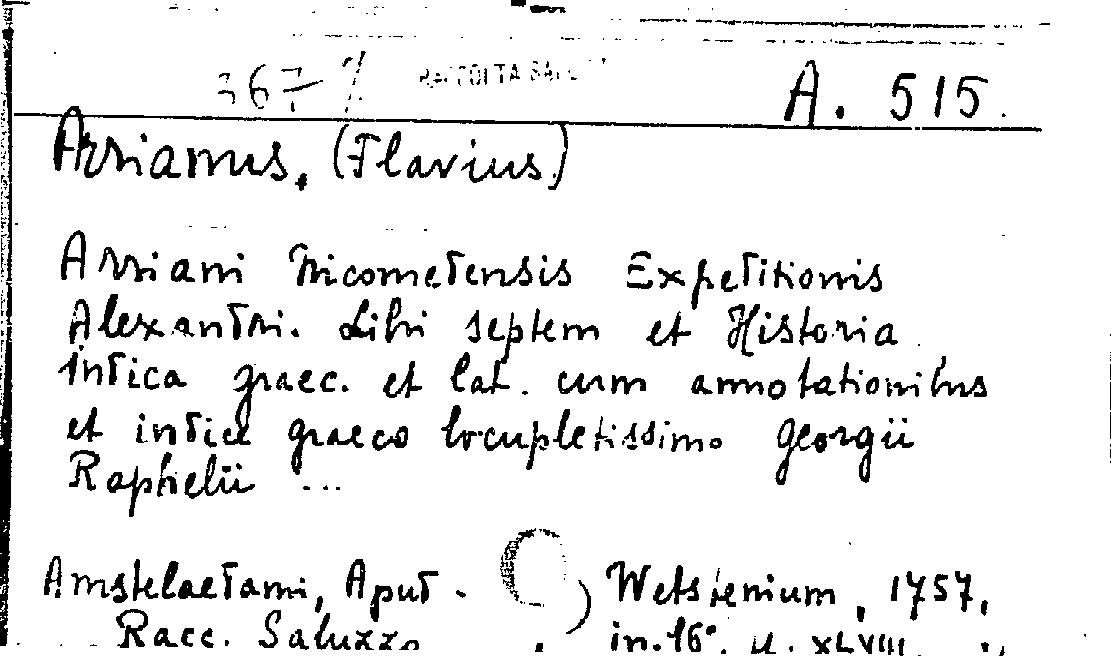 367 RACCOLTA A. 515.
Arrianus, (Flavius)
Arriani Nicomedensis Expeditionis
Alexandri. Libri septem et Historia
indica graec. et lat. cum annotationibus
et indice graeco locupletissimo Georgii
Raphelii ...
Amstelaedami, Apud - Wetstenium, 1757,
Racc. Saluzzo in.16° XLVIII